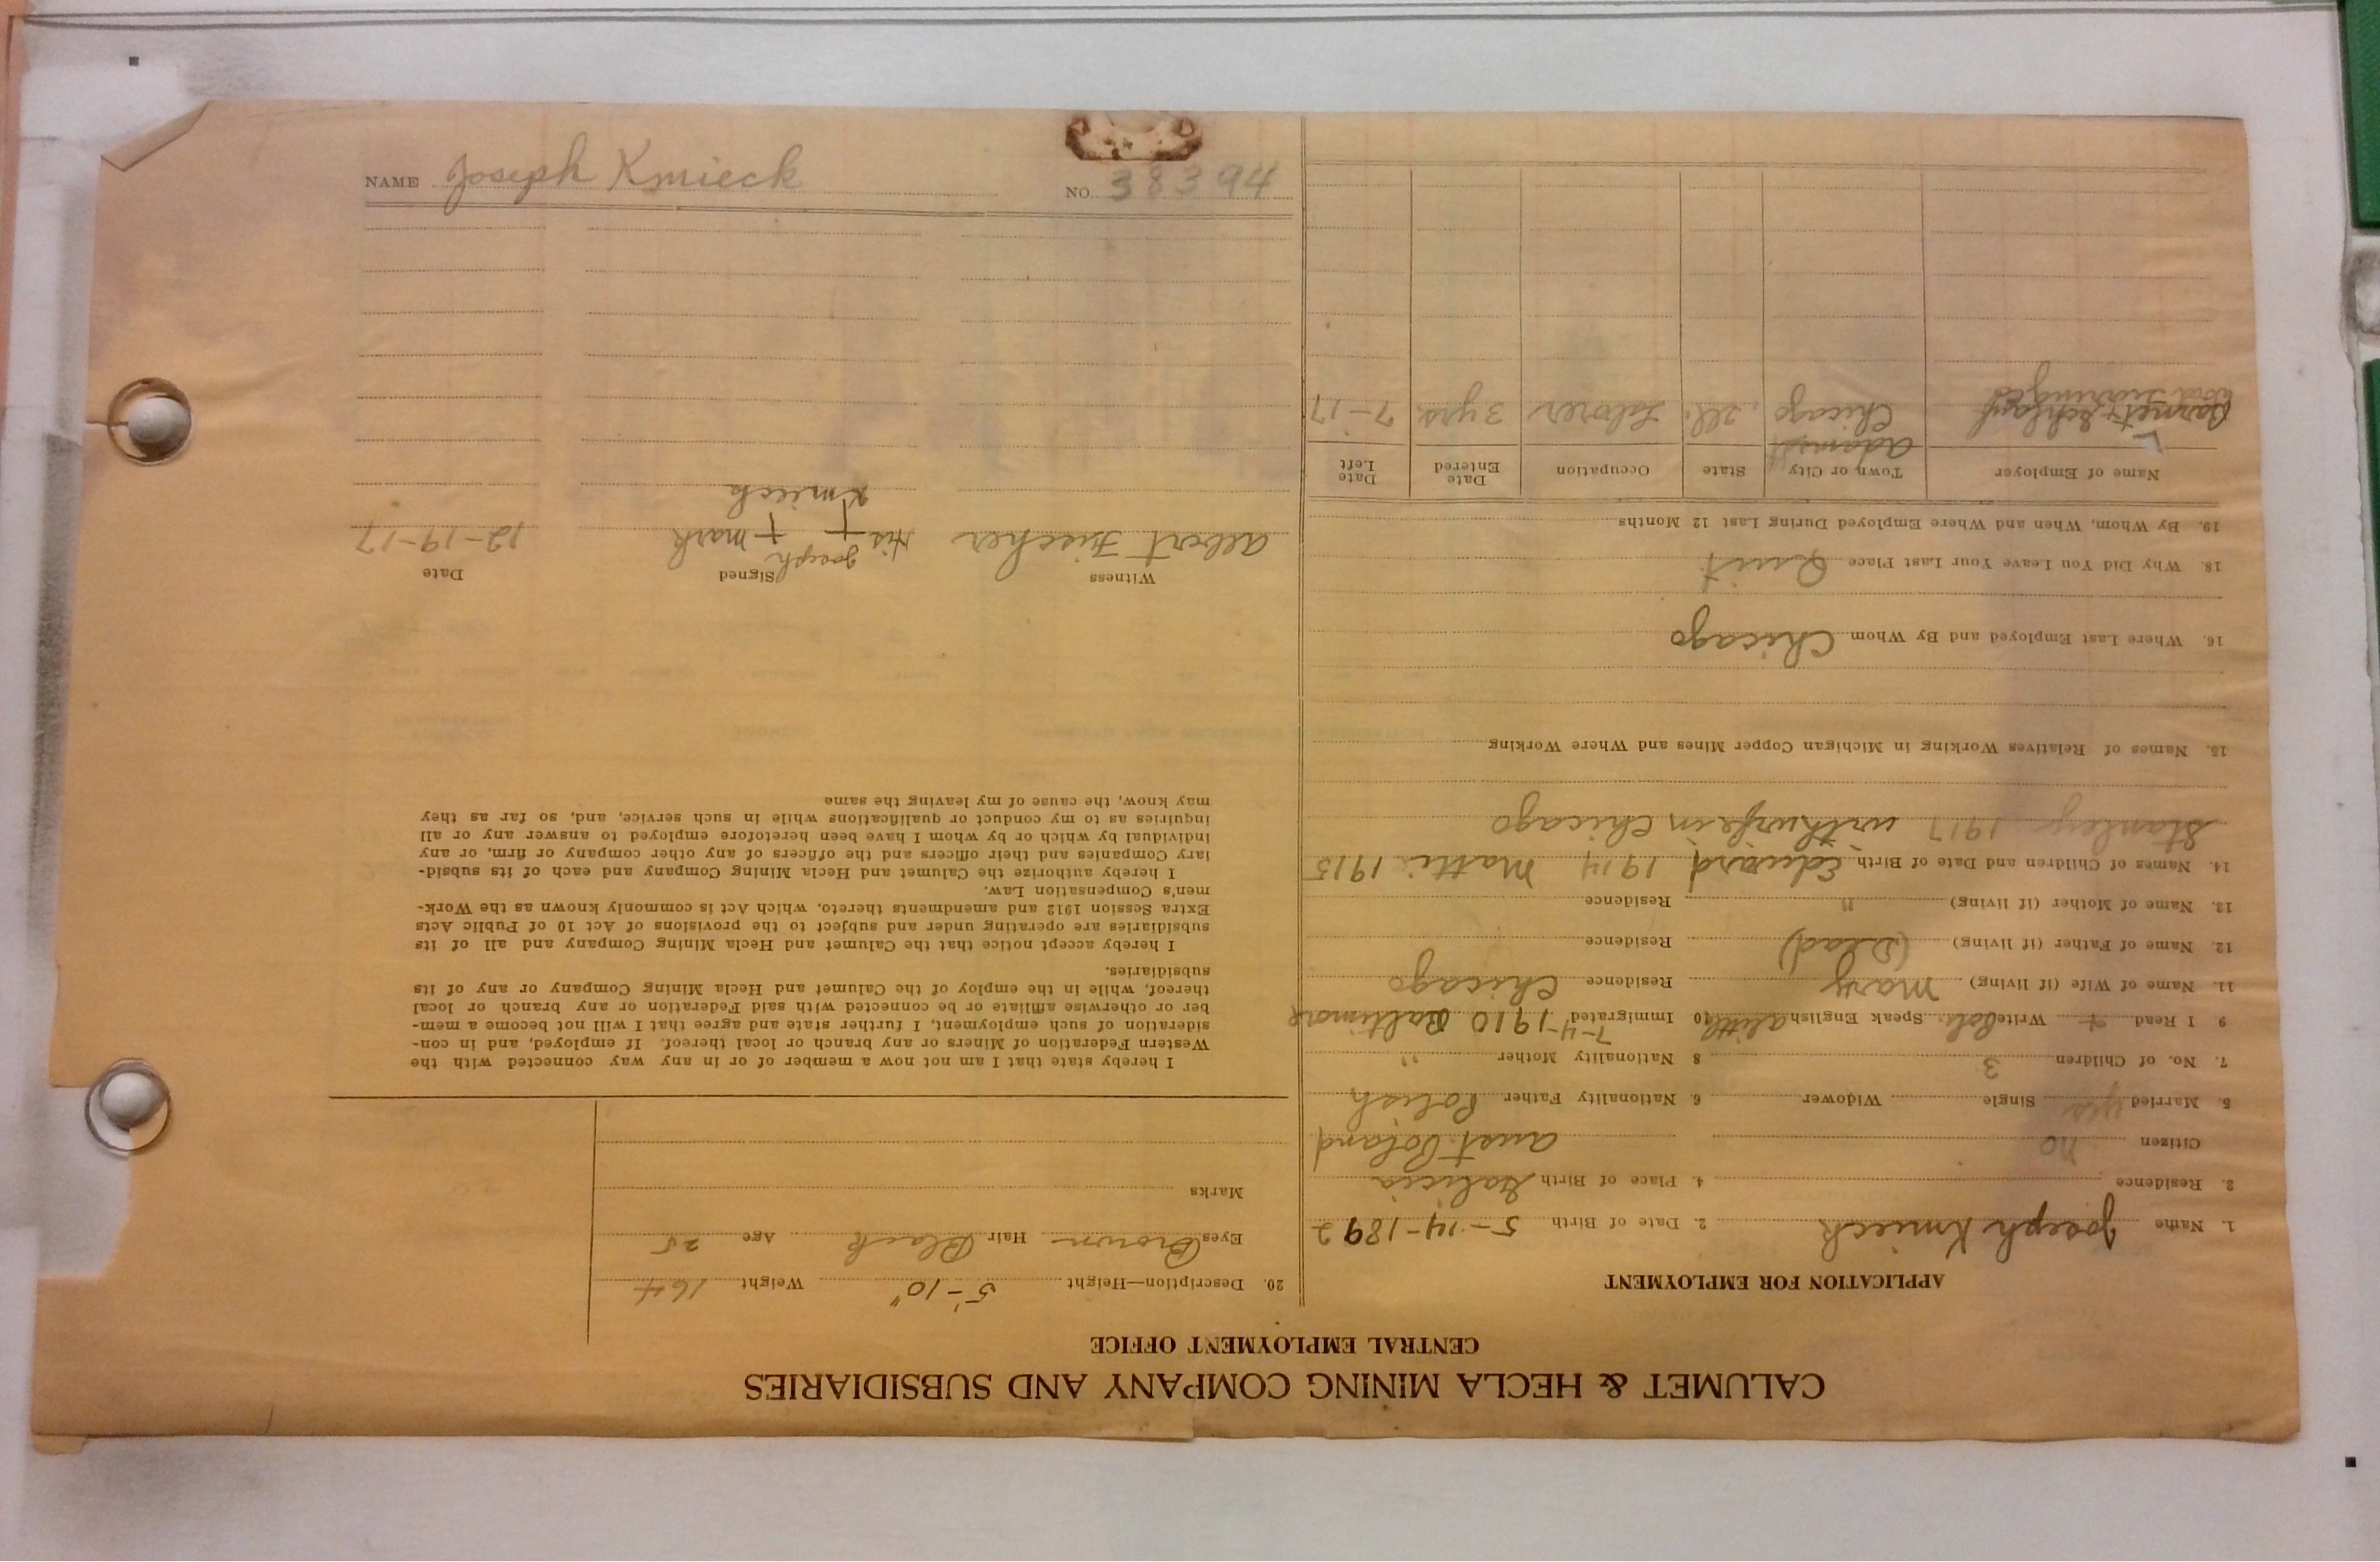 CALUMET & HECLA MINING COMPANY AND SUBSIDIARIES
CENTRAL EMPLOYMENT OFFICE
APPLICATION FOR EMPLOYMENT
1. Name Joseph Kmieck 2. Date of Birth 5-14-1892
3. Residence 4. Place of Birth Galicia
Citizen no Aust. Poland
5. Married yes Single Widower 6. Nationality Father Polish
7. No. of Children 3 8 Nationality Mother "
9 I Read + Write Pol. Speak English a little 10 Immigrated 7-4-1910 Baltimore
11. Name of Wife (if living) Mary Residence Chicago
12. Name of Father (if living) (Dead) Residence
13. Name of Mother (if living) " Residence
14. Names of Children and Date of Birth Edward 1914 Matti 1915
Stanley 1917 with wife in Chicago
15. Names of Relatives Working in Michigan Copper Mines and Where Working
16. Where Last Employed and By Whom Chicago
18. Why Did You Leave Your Last Place Quit
19. By Whom, When and Where Employed During Last 12 Months
Name of Employer Town or City State Occupation Date Entered Date Left
Adams
Chicago Ill. Laborer 3 yrs. 7-17
20. Description—Height 5'-10" Weight 164
Eyes Brown Hair Black Age 25
Marks
I hereby state that I am not now a member of or in any way connected with the
Western Federation of Miners or any branch or local thereof. If employed, and in con-
sideration of such employment, I further state and agree that I will not become a mem-
ber or otherwise affiliate or be connected with said Federation or any branch or local
thereof, while in the employ of the Calumet and Hecla Mining Company or any of its
subsidiaries.
I hereby accept notice that the Calumet and Hecla Mining Company and all of its
subsidiaries are operating under and subject to the provisions of Act 10 of Public Acts
Extra Session 1912 and amendments thereto, which Act is commonly known as the Work-
men's Compensation Law.
I hereby authorize the Calumet and Hecla Mining Company and each of its subsid-
iary Companies and their officers and the officers of any other company or firm, or any
individual by which or by whom I have been heretofore employed to answer any or all
inquiries as to my conduct or qualifications while in such service, and, so far as they
may know, the cause of my leaving the same
Witness Signed Date
Albert Fischer Joseph His + mark Kmieck 12-19-17
NAME Joseph Kmieck NO. 38394